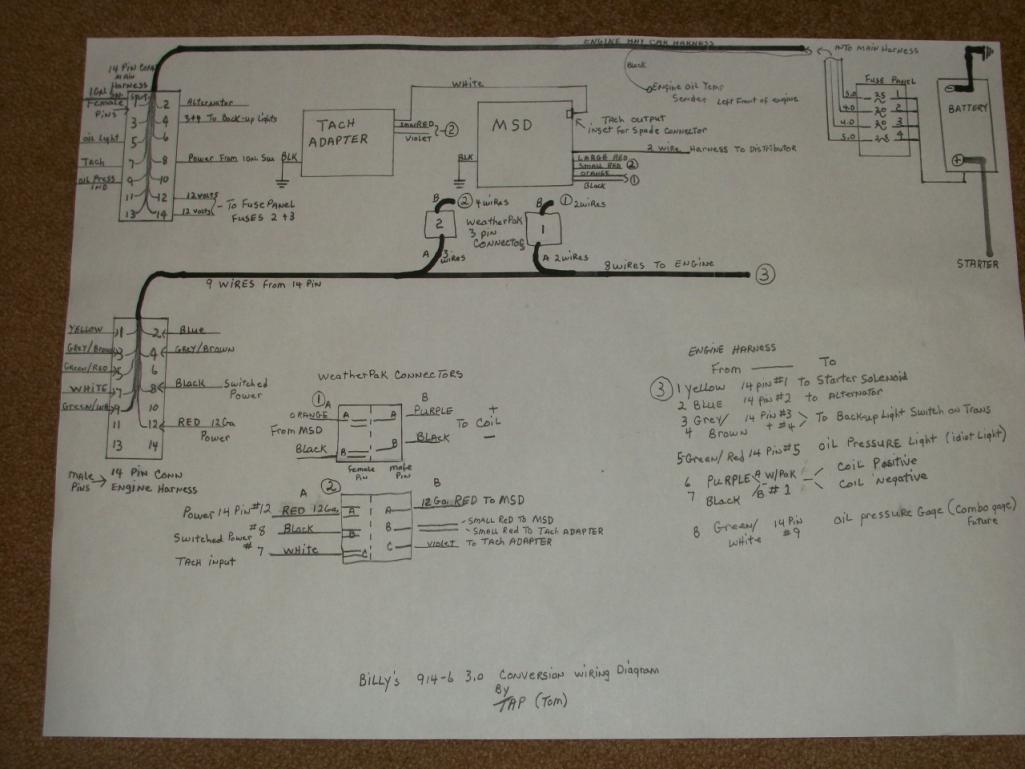 ENGINE BAY CAR HARNESS
INTO MAIN HARNESS
14 Pin Conn
MAIN
Harness
Female
Pins
1
2
Alternator
3
4
3+4 To Back-up Lights
oil Light
5
6
Tach
7
8
Power From
BLK
oil Press
IND
9
10
11
12
12 volts
13
14
12 volts
To Fuse Panel
FUSES 2 + 3
TACH
ADAPTER
small RED
Violet
2
WHITE
MSD
BLK
Tach output
inset for Spade Connector
2 WIRE Harness To Distributor
LARGE RED
SMALL RED 2
ORANGE
Black
1
Black
Engine oil Temp
Sender Left Front of engine
Fuse Panel
5.0 25 1
4.0 20 2
4.0 20 3
5.0 25 4
BATTERY
-
+
STARTER
B 2 4 wires
2
WeatherPak
3 pin
Connectors
A 3 wires
B 1 2 wires
1
A 2 wires
9 WIRES From 14 Pin
8 WIRES TO ENGINE
3
YELLOW 1 2 Blue
GREY/Brown 3 4 GREY/BROWN
Green/RED 5 6
WHITE 7 8 Black Switched
Power
Green/WH 9 10
11 12 RED 12Ga
Power
13 14
male
Pins
14 Pin Conn
Engine Harness
WeatherPak Connectors
1 A B
ORANGE A A PURPLE +
From MSD To Coil
Black B B BLACK -
female
Pin
male
Pin
2
A B
Power 14 Pin #12 RED 12Ga A A 12 Ga RED To MSD
Switched Power #8 Black B B - SMALL RED To MSD
- SMALL RED To TACH ADAPTER
#7 WHITE C C Violet To TACH ADAPTER
TACH input
ENGINE HARNESS
From To
3 1 Yellow 14 pin #1 To Starter Solenoid
2 BLUE 14 pin #2 to Alternator
3 Grey/ 14 Pin #3
4 Brown + #4 To Back-up Light Switch on Trans
5 Green/Red 14 Pin #5 oil Pressure Light (idiot Light)
6 PURPLE A W/Pak Coil Positive
7 Black B #1 Coil Negative
8 Green/ 14 Pin oil pressure Gage (Combo gage)
White #9 Future
BILLY'S 914-6 3.0 Conversion wiring Diagram
By
TAP (Tom)